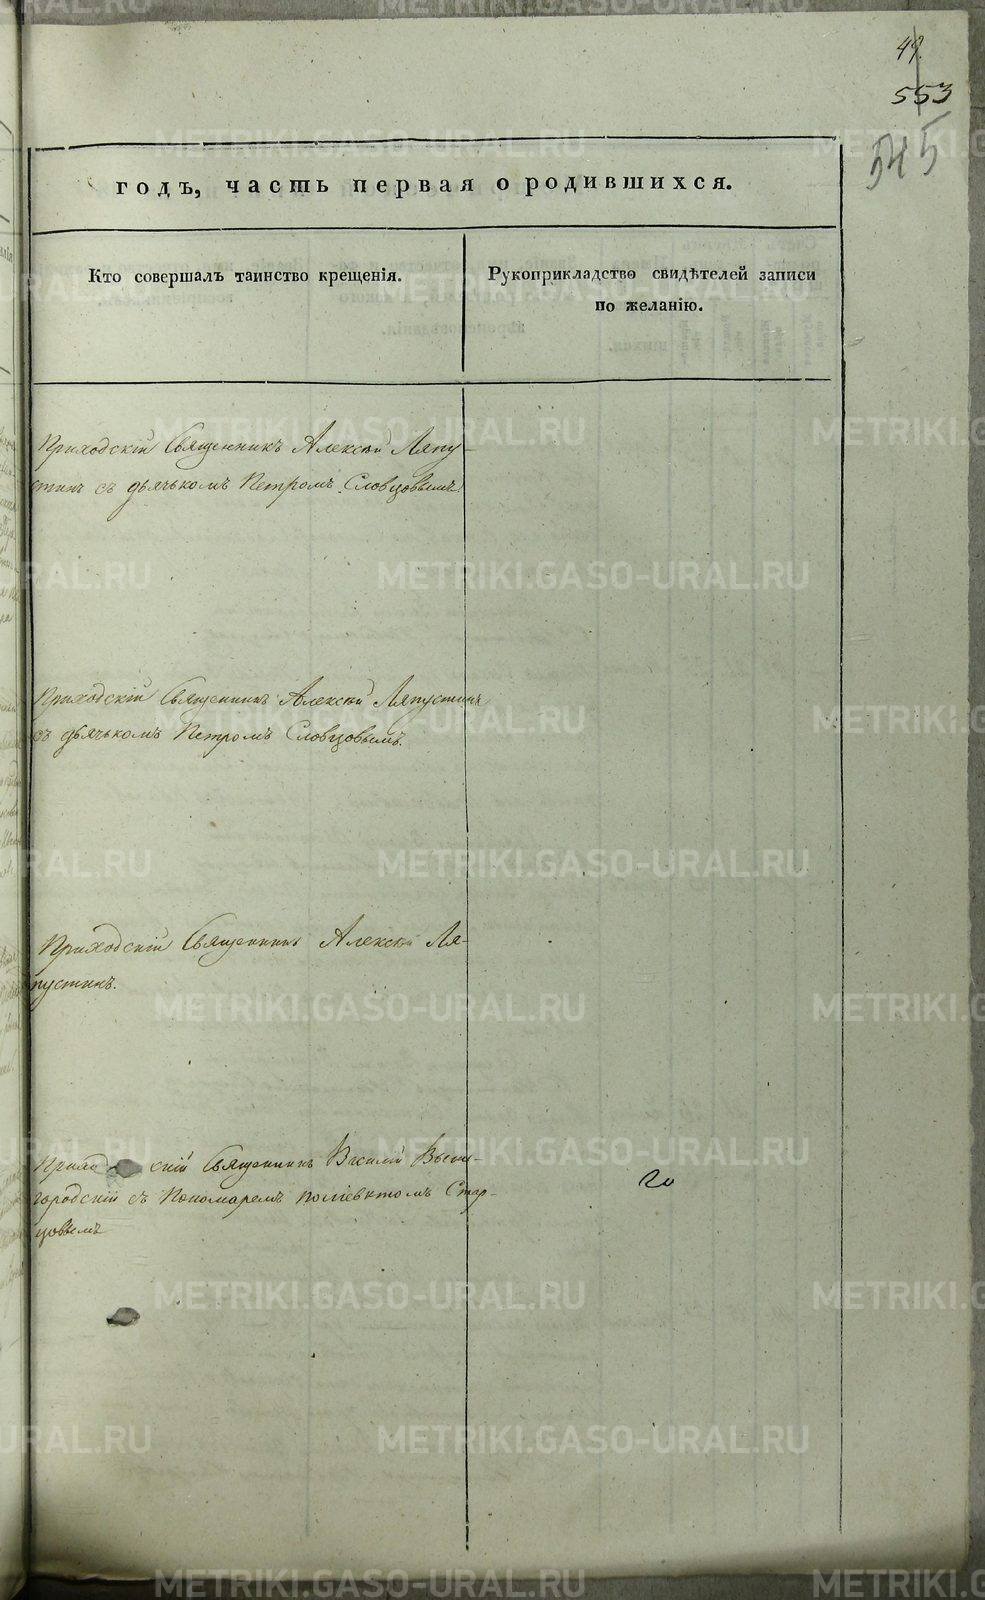 49.
553
545
годъ, часть первая о родившихся.
Кто совершалъ таинство крещенія.
Рукоприкладство свидѣтелей записи
по желанію.
Приходскій Священникъ Алексѣй Ляпу-
стинъ съ дьячькомъ Петромъ Словцовымъ
Приходскій Священникъ Алексѣй Ляпустинъ
съ дьячькомъ Петромъ Словцовымъ.
Приходскій Священникъ Алексѣй Ля-
пустинъ.
скій Священникъ Василій Выше-
городскій съ Пономаремъ Поліевктомъ Стар-
цовымъ
METRIKI.GASO-URAL.RU